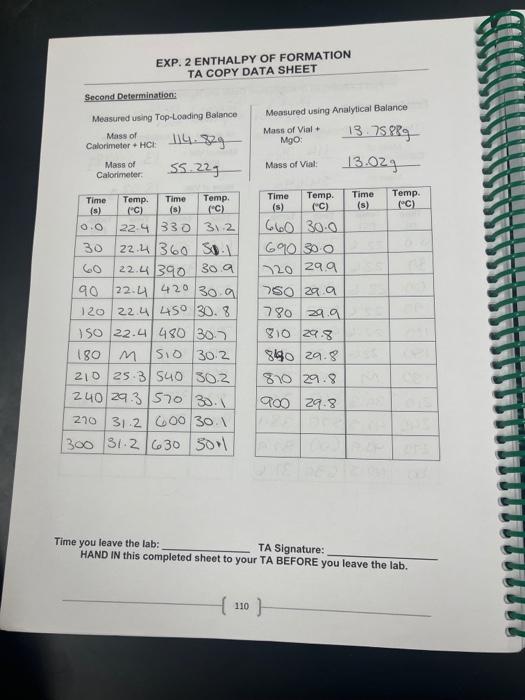 EXP. 2 ENTHALPY OF FORMATION
TA COPY DATA SHEET
Second Determination:
Measured using Top-Loading Balance
Mass of
Calorimeter + HCl: 114.82g
Mass of
Calorimeter: 55.22g
Measured using Analytical Balance
Mass of Vial +
MgO: 13.7588g
Mass of Vial: 13.02g
Time (s) Temp. (°C) Time (s) Temp. (°C)
0.0 22.4 330 31.2
30 22.4 360 31.1
60 22.4 390 30.9
90 22.4 420 30.9
120 22.4 450 30.8
150 22.4 480 30.7
180 M 510 30.2
210 25.3 540 30.2
240 29.3 570 30.1
270 31.2 600 30.1
300 31.2 630 30.1
Time (s) Temp. (°C) Time (s) Temp. (°C)
660 30.0
690 30.0
720 29.9
750 29.9
780 29.9
810 29.8
840 29.8
870 29.8
900 29.8
Time you leave the lab:
TA Signature:
HAND IN this completed sheet to your TA BEFORE you leave the lab.
110